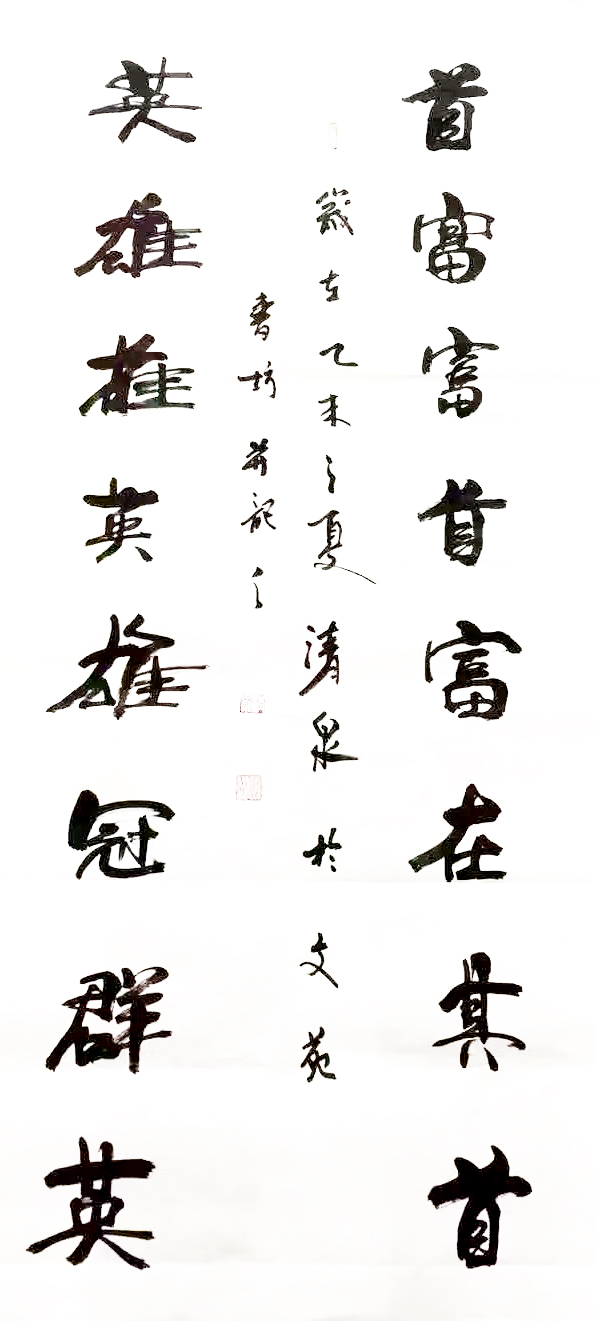 首富富首富在其首
歲在乙未之夏清泉於文苑
書坊並記之
英雄雄英雄冠群英